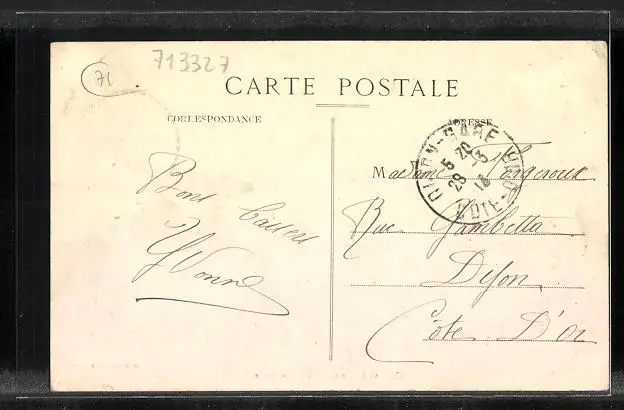 71
713327
CARTE POSTALE
CORRESPONDANCE
ADRESSE
Bons baisers
Yvonne
Madame
Rue Gambetta
Dijon
Côte D'Or
DIJON-GARE
5 20
28 -3
COTE-D'OR